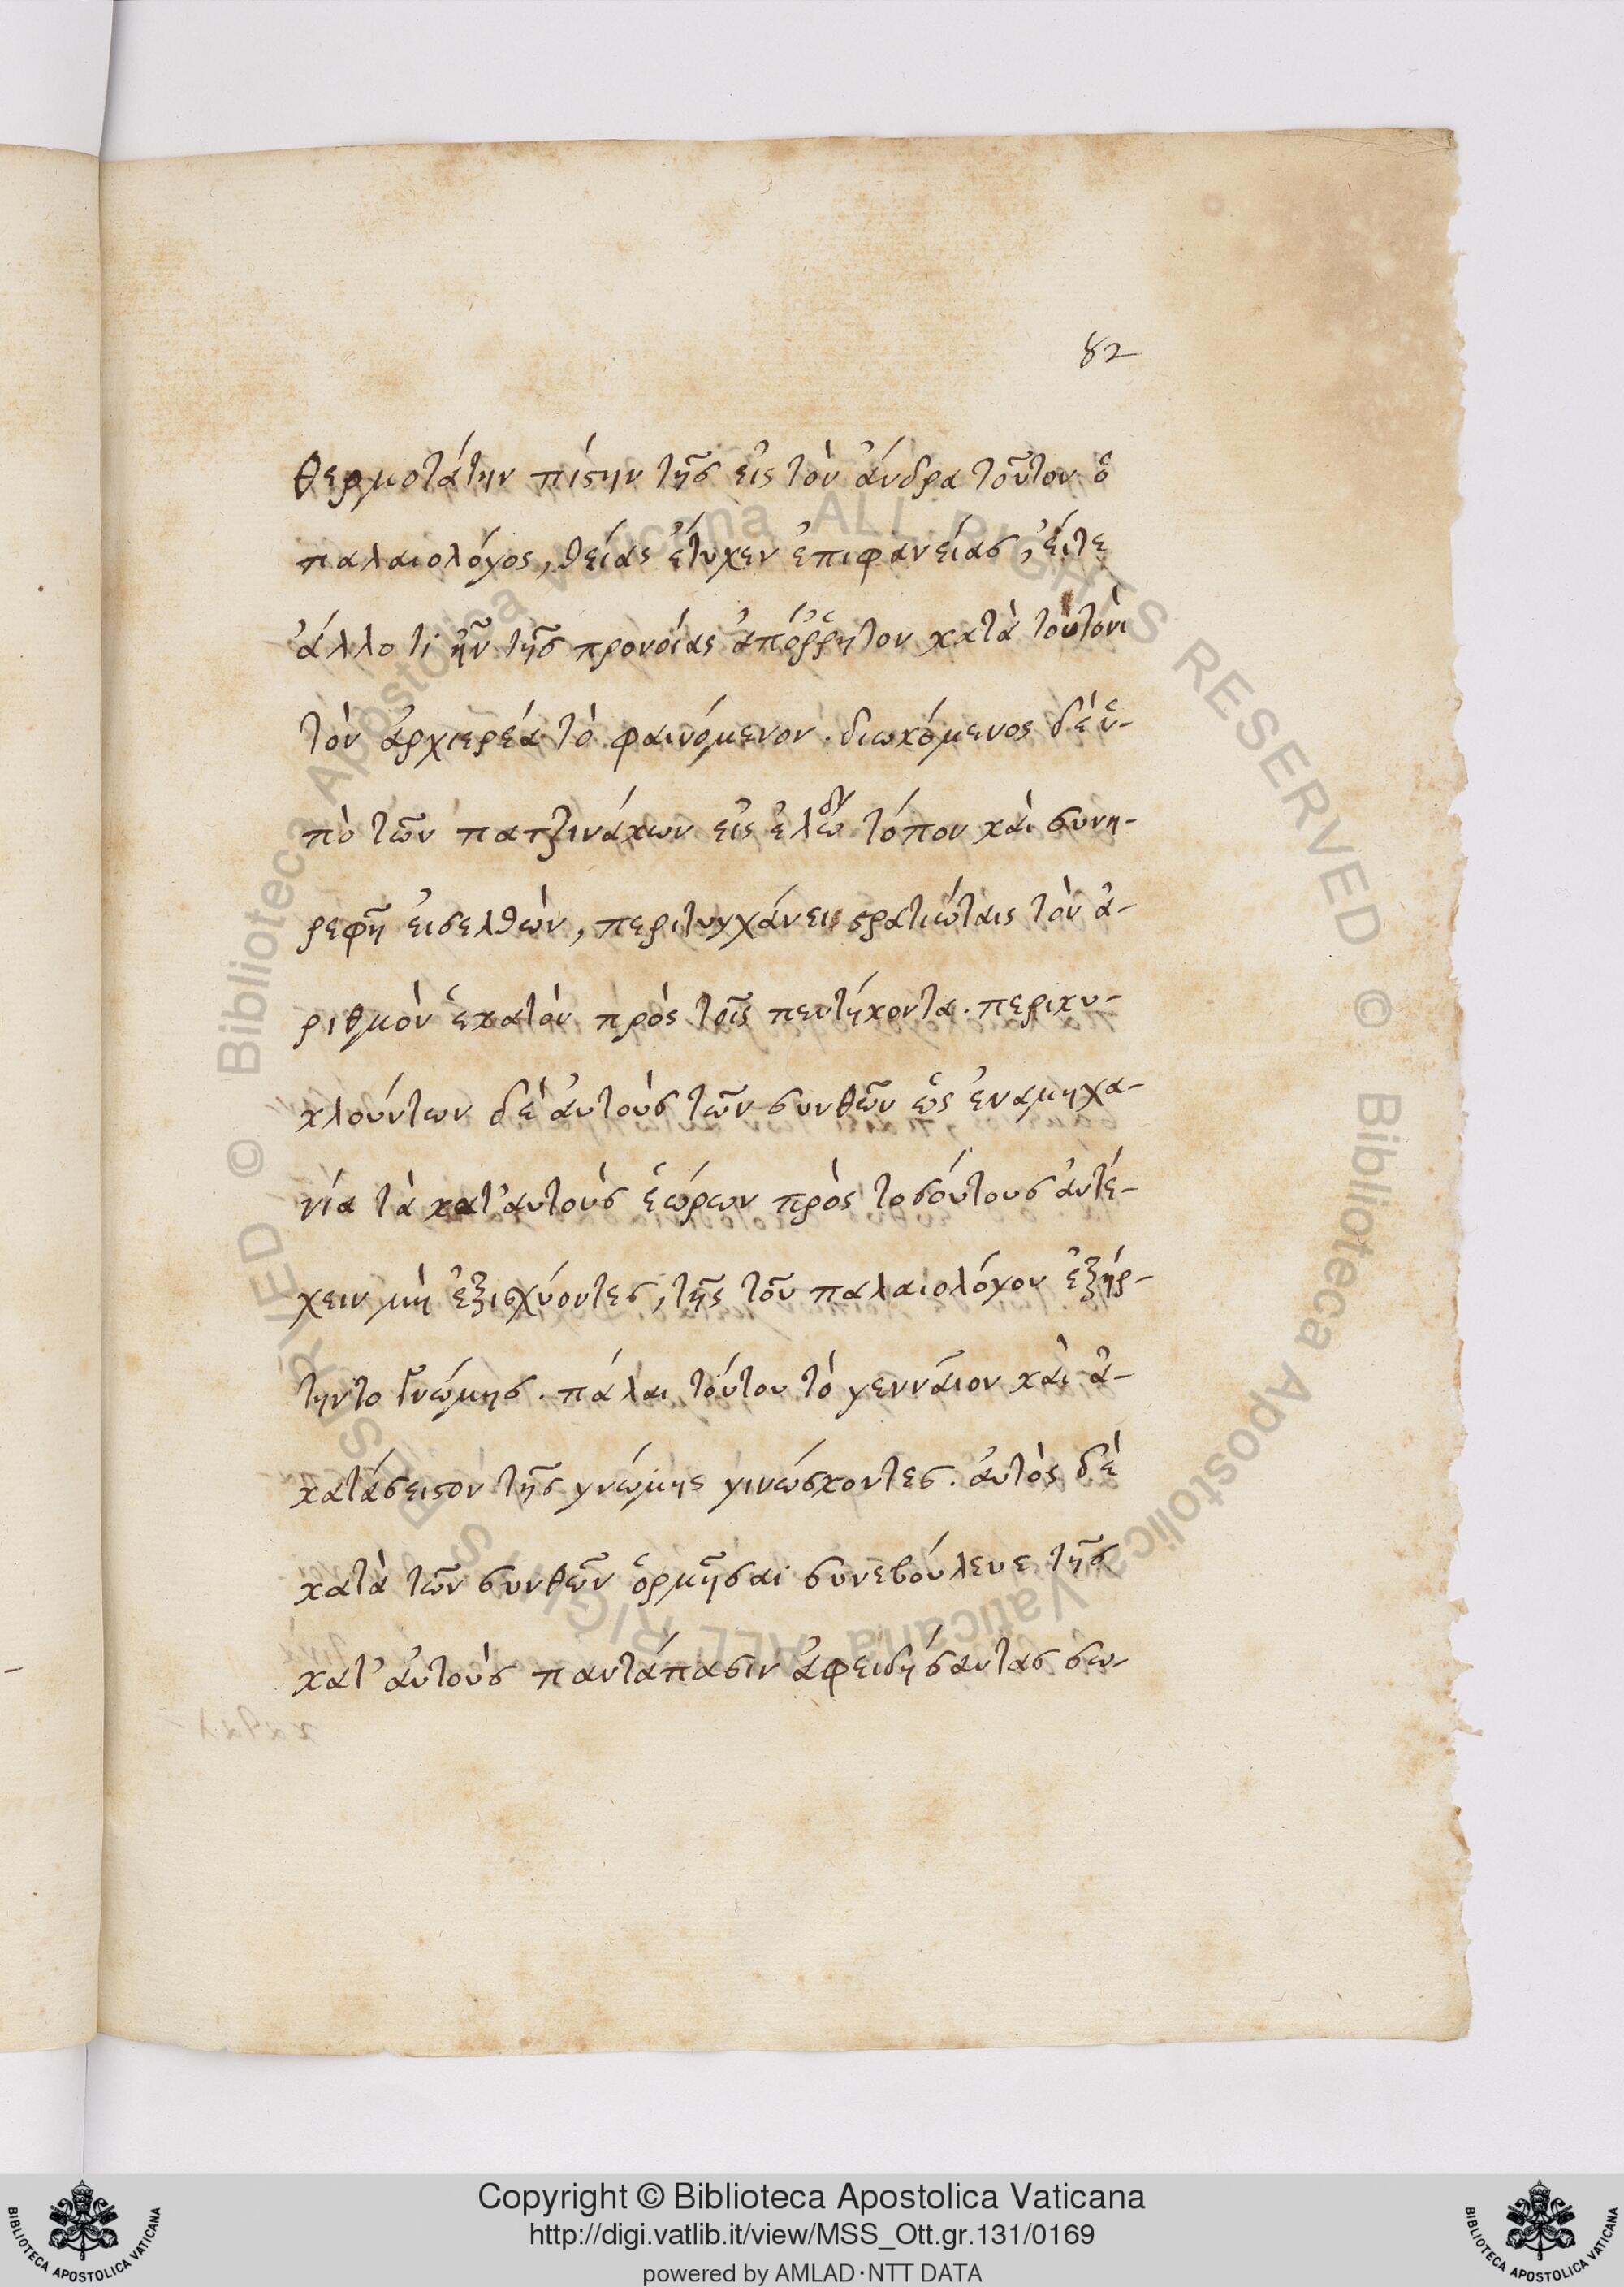 82
θερμοτάτην πίστην τῆς εἰς τὸν ἄνδρα τοῦτον ὁ
παλαιολόγος, θείας ἔτυχεν ἐπιφανείας, εἴτε
ἄλλο τί ἦν τῆς προνοίας ἀπόῤῥητον κατὰ τουτονὶ
τὸν ἀρχιερέα τὸ φαινόμενον. διωκόμενος δὲ ὑ-
πὸ τῶν πατζινάκων εἰς ἑλώδη τόπον καὶ συνη-
ρεφῆ εἰσελθὼν, περιτυγχάνει στρατιώταις τὸν ἀ-
ριθμὸν ἑκατὸν πρὸς τοῖς πεντήκοντα. περικυ-
κλούντων δὲ αὐτοὺς τῶν σκυθῶν ὡς ἐν ἀμηχα-
νία τὰ κατ' αὐτοὺς ἑώρων πρὸς τοσούτους ἀντέ-
χειν μὴ ἐξισχύοντες, τῆς τοῦ παλαιολόγου ἐξήρ-
τηντο γνώμης. πάλαι τούτου τὸ γενναῖον καὶ ἀ-
κατάσειστον τῆς γνώμης γινώσκοντες. αὐτὸς δὲ
κατὰ τῶν σκυθῶν ὁρμῆσαι συνεβούλευε τῆς
κατ' αὐτοὺς παντάπασιν ἀφειδήσαντας σω-
Copyright © Biblioteca Apostolica Vaticana
http://digi.vatlib.it/view/MSS_Ott.gr.131/0169
powered by AMLAD·NTT DATA
BIBLIOTECA APOSTOLICA VATICANA
BIBLIOTECA APOSTOLICA VATICANA
© Biblioteca Apostolica Vaticana ALL RIGHTS RESERVED
© Biblioteca Apostolica Vaticana ALL RIGHTS RESERVED